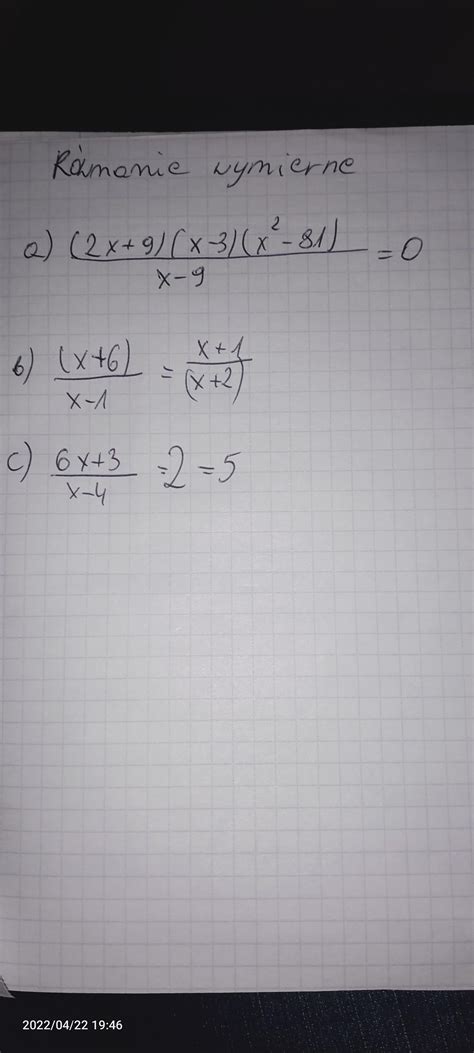 Rómanie wymierne
a) (2x+9)(x-3)(x²-81) / x-9 = 0
b) (x+6) / x-1 = x+1 / (x+2)
c) 6x+3 / x-4 = 2 = 5
2022/04/22 19:46